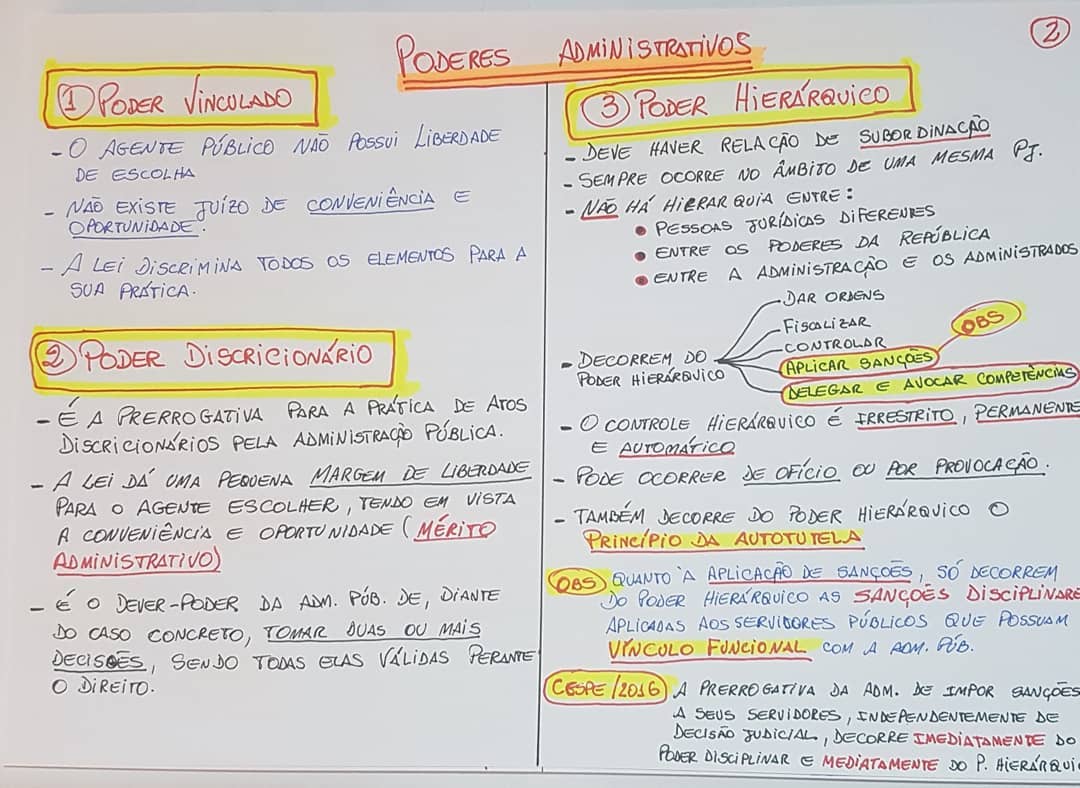 PODERES ADMINISTRATIVOS
2
1 PODER VINCULADO
- O AGENTE PÚBLICO NÃO POSSUI LIBERDADE
DE ESCOLHA
- NÃO EXISTE JUÍZO DE CONVENIÊNCIA E
OPORTUNIDADE.
- A LEI DISCRIMINA TODOS OS ELEMENTOS PARA A
SUA PRÁTICA.
2 PODER DISCRICIONÁRIO
- É A PRERROGATIVA PARA A PRÁTICA DE ATOS
DISCRICIONÁRIOS PELA ADMINISTRAÇÃO PÚBLICA.
- A LEI DÁ UMA PEQUENA MARGEM DE LIBERDADE
PARA O AGENTE ESCOLHER, TENDO EM VISTA
A CONVENIÊNCIA E OPORTUNIDADE (MÉRITO
ADMINISTRATIVO)
- É O DEVER-PODER DA ADM. PÚB. DE, DIANTE
DO CASO CONCRETO, TOMAR DUAS OU MAIS
DECISOÊS, SENDO TODAS ELAS VÁLIDAS PERANTE
O DIREITO.
3 PODER HIERÁRQUICO
- DEVE HAVER RELAÇÃO DE SUBORDINAÇÃO
- SEMPRE OCORRE NO ÂMBITO DE UMA MESMA PJ.
- NÃO HÁ HIERARQUIA ENTRE:
• PESSOAS JURÍDICAS DIFERENTES
• ENTRE OS PODERES DA REPÚBLICA
• ENTRE A ADMINISTRAÇÃO E OS ADMINISTRADOS
- DECORREM DO
PODER HIERÁRQUICO
DAR ORDENS
FISCALIZAR
CONTROLAR
APLICAR SANÇÕES
OBS
DELEGAR E AVOCAR COMPETÊNCIAS
- O CONTROLE HIERÁRQUICO É IRRESTRITO, PERMANENTE
E AUTOMÁTICO
- PODE OCORRER DE OFÍCIO OU POR PROVOCAÇÃO.
- TAMBÉM DECORRE DO PODER HIERÁRQUICO O
PRINCÍPIO DA AUTOTUTELA
OBS QUANTO À APLICAÇÃO DE SANÇOÊS, SÓ DECORREM
DO PODER HIERÁRQUICO AS SANÇOÊS DISCIPLINARE
APLICADAS AOS SERVIDORES PÚBLICOS QUE POSSUAM
VÍNCULO FUNCIONAL COM A ADM. PÚB.
CESPE/2016 A PRERROGATIVA DA ADM. DE IMPOR SANÇOÊS
A SEUS SERVIDORES, INDEPENDENTEMENTE DE
DECISÃO JUDICIAL, DECORRE IMEDIATAMENTE DO
PODER DISCIPLINAR E MEDIATAMENTE DO P. HIERÁRQUI